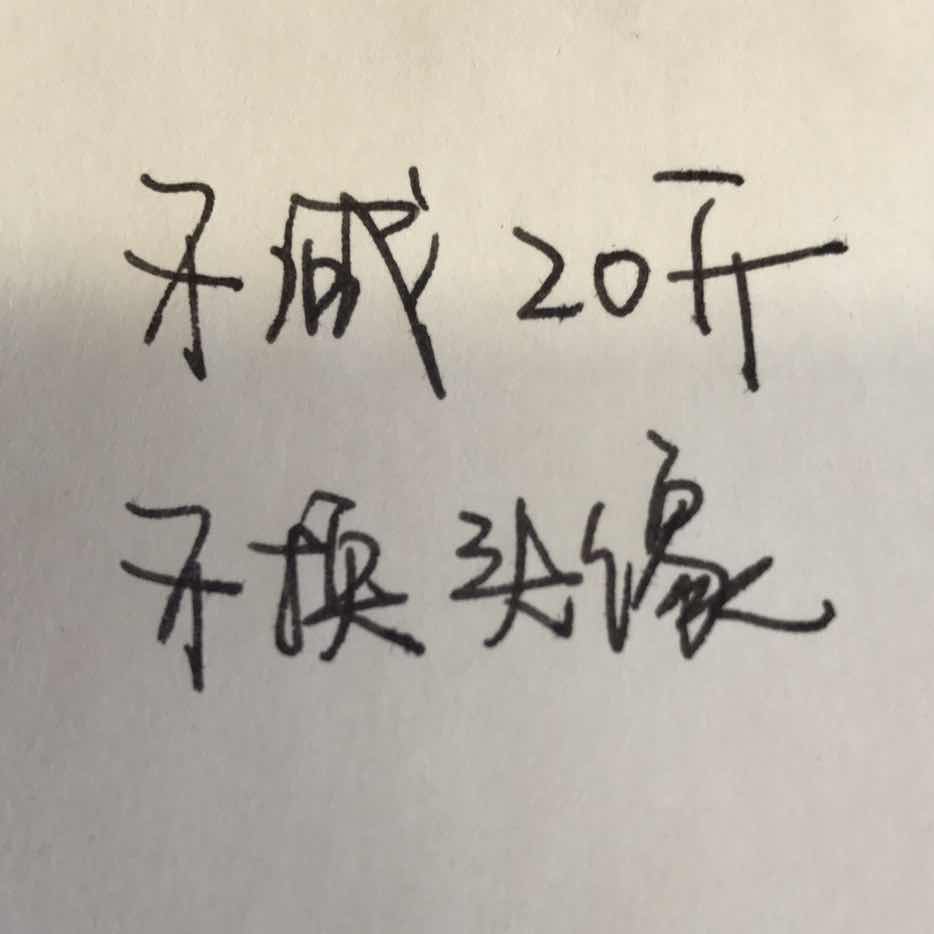 不减20斤
不换头像